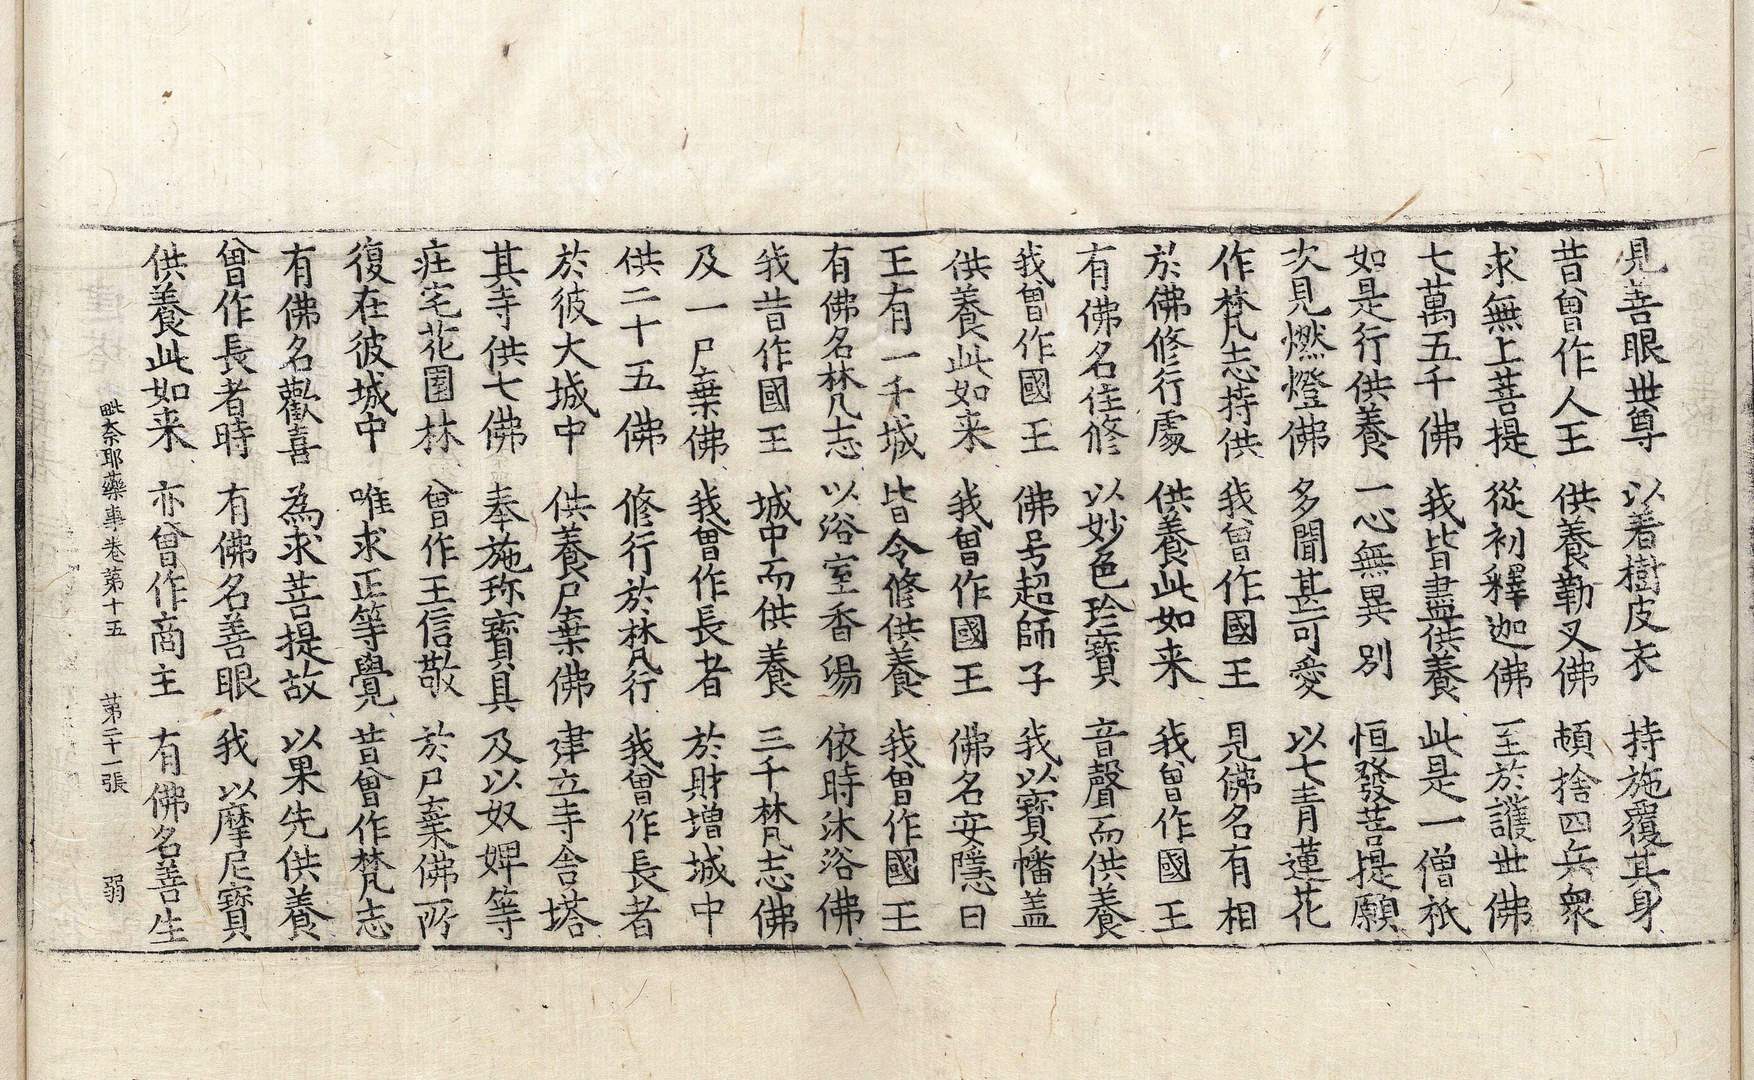 見善眼世尊 以著樹皮衣 持施覆其身
昔曾作人王 供養勒叉佛 頓捨四兵衆
求無上菩提 從初釋迦佛 至於護世佛
七萬五千佛 我皆盡供養 此是一僧祇
如是行供養 一心無異別 恒發菩提願
次見燃燈佛 多聞甚可愛 以七青蓮花
作梵志持供 我曾作國王 見佛名有相
於佛修行處 供養此如来 我曾作國王
有佛名住修 以妙色珍寶 音聲而供養
我曾作國王 佛号超師子 我以寶幡盖
供養此如来 我曾作國王 佛名安隱曰
王有一千城 皆令修供養 我曾作國王
有佛名梵志 以浴室香湯 依時沐浴佛
我昔作國王 城中而供養 三千梵志佛
及一尸棄佛 我曾作長者 於財增城中
供二十五佛 修行於梵行 我曾作長者
於彼大城中 供養尸棄佛 建立寺舍塔
其寺供七佛 奉施珎寶具 及以奴婢等
庄宅花園林 曾作王信敬 於尸棄佛所
復在彼城中 唯求正等覺 昔曾作梵志
有佛名歡喜 為求菩提故 以果先供養
曾作長者時 有佛名善眼 我以摩尼寶
供養此如来 亦曾作商主 有佛名善生
毗奈耶藥事卷第十五 第二十一張 弱